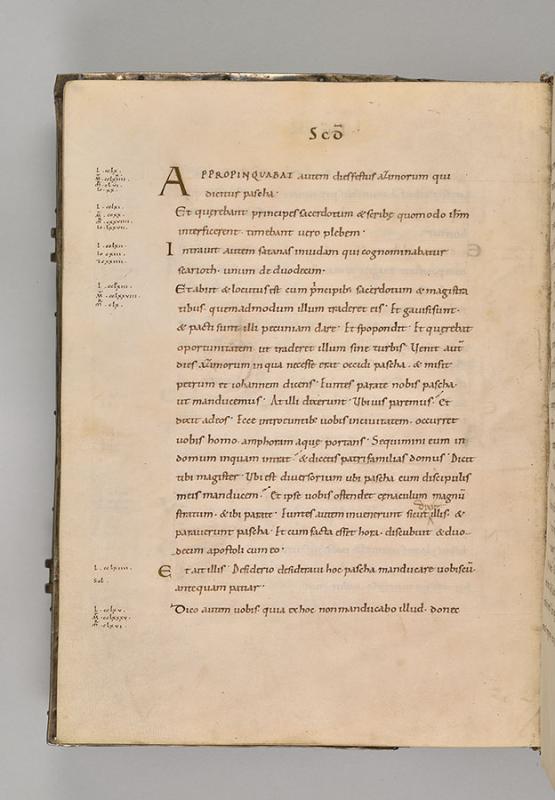 Scd̄
APPROPINQUABAT autem diesfestus azimorum qui
dicitur pascha·
Et querebant principes sacerdotum & scribę quomodo ihm̄
interficerent· timebant uero plebem·
Intrauit autem satanas iniudam qui cognominabatur
scarioth· unum de duodecim·
Etabiit & locutus est cum principib; sacerdotum & magistra
tibus· quemadmodum illum traderet eis· Et gauisi sunt·
& pacti sunt illi pecuniam dare· Et spopondit· Et querebat
oportunitatem ut traderet illum sine turbis· Uenit aut̄
dies azimorum in qua necesse erat occidi pascha· & misit
petrum et iohannem dicens· Euntes parate nobis pascha·
ut manducemus· At illi dixerunt· Ubi uis paremus· Et
dixit ad eos· Ecce introeuntib; uobis in ciuitatem· occurret
uobis homo· amphoram aquę portans· Sequimini eum in
domum inquam intrat· & dicetis patrifamilias domus· Dicit
tibi magister· Ubi est diuersorium ubi pascha cum discipulis
meis manducem· Et ipse uobis ostendet cenaculum magnū
stratum· & ibi parate· Euntes autem inuenerunt sicut dixit illis· &
parauerunt pascha· Et cum facta esset hora· discubuit & duo-
decim apostoli cum eo·
Et ait illis· Desiderio desideraui hoc pascha manducare uobiscū·
antequam patiar·
Dico autem uobis· quia ex hoc non manducabo illud· donec